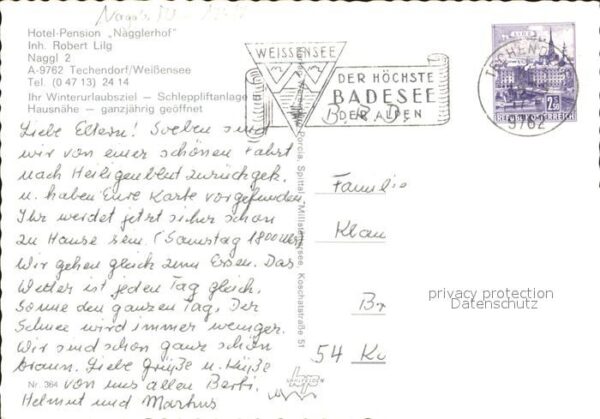 Hotel-Pension „Nägglerhof"
Inh. Robert Lilg
Naggl 2
A-9762 Techendorf/Weißensee
Tel. (0 47 13) 24 14
Ihr Winterurlaubsziel – Schleppliftanlage
Hausnähe – ganzjährig geöffnet
WEISSENSEE
DER HÖCHSTE
BADESEE
DER ALPEN
LINZ
9762
REPUBLIK ÖSTERREICH
B. R. D.
Liebe Eltern! Soeben sind
wir von einer schönen Fahrt
nach Heiligenblut zurückgek.
u. haben Eure Karte vorgefunden.
Ihr werdet jetzt sicher schon
zu Hause sein. (Samstag 18 00 Uhr)
Wir gehen gleich zum Essen. Das
Wetter ist jeden Tag gleich.
Sonne den ganzen Tag. Der
Schnee wird immer weniger.
Wir sind schon ganz schön
braun. Liebe Grüße u. Küße
von uns allen Berti,
Helmut und Markus
Familie
Klau
Br
54 Ko
Nr. 364
Porcia, Spittal, Millstättersee, Koschatstraße 51
privacy protection
Datenschutz